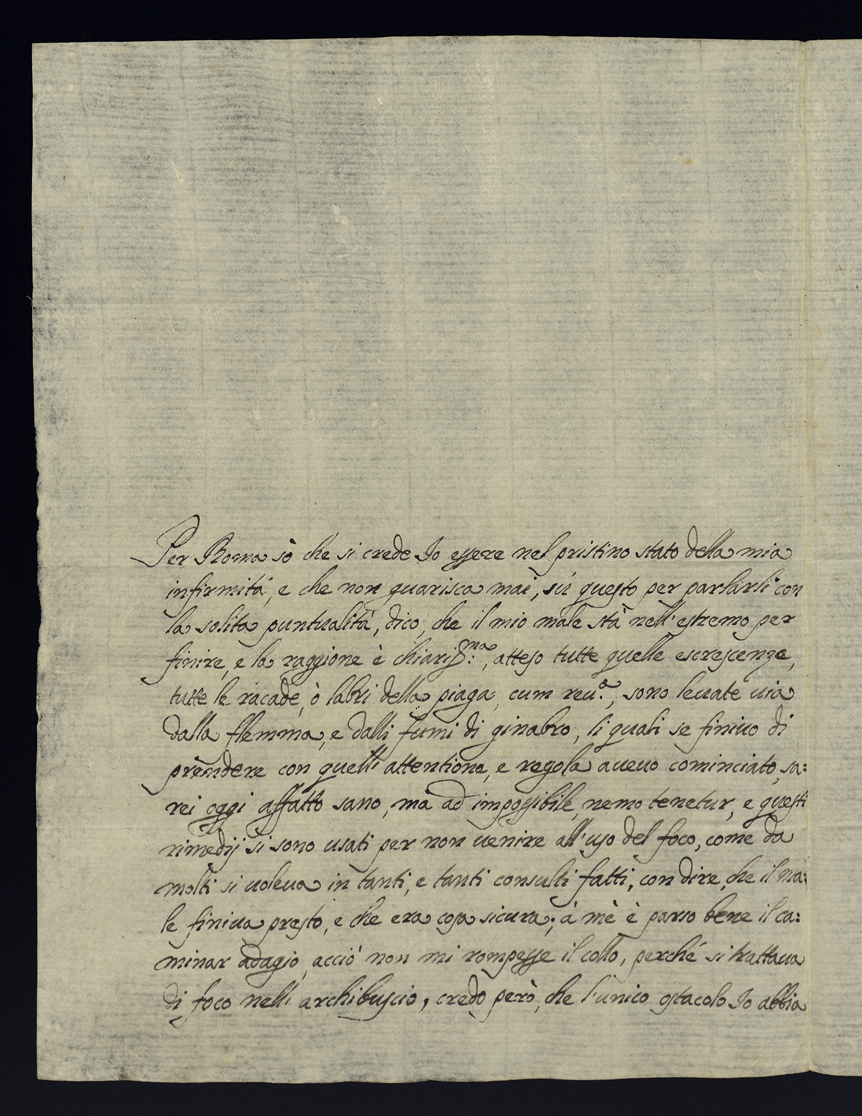 Per Roma sò che si crede Io essere nel pristino stato della mia
infirmità, e che non guarisca mai, sù questo per parlarli con
la solita puntualità, dico, che il mio male stà nell'estremo per
finire, e la raggione è chiariss:ma, atteso tutte quelle escrescenze,
tutte le racade, ò labri della piaga, cum reu.a, sono leuate uia
dalla flemma, e dalli fumi di ginabro, li quali se finiuo di
prendere con quelli attentione, e regola aueuo cominciato, sa:
rei oggi affatto sano, ma ad impossibile nemo tenetur, e questi
rimedij si sono usati per non uenire all'uso del foco, come da
molti si uoleua in tanti, e tanti consulti fatti, con dire, che il ma:
le finiua presto, e che era cosa sicura; à mè è parso bene il ca:
minar adagio, acciò non mi rompesse il collo, perché si trattaua
di foco nell'archibuscio, credo però, che l'unico ostacolo Io abbia